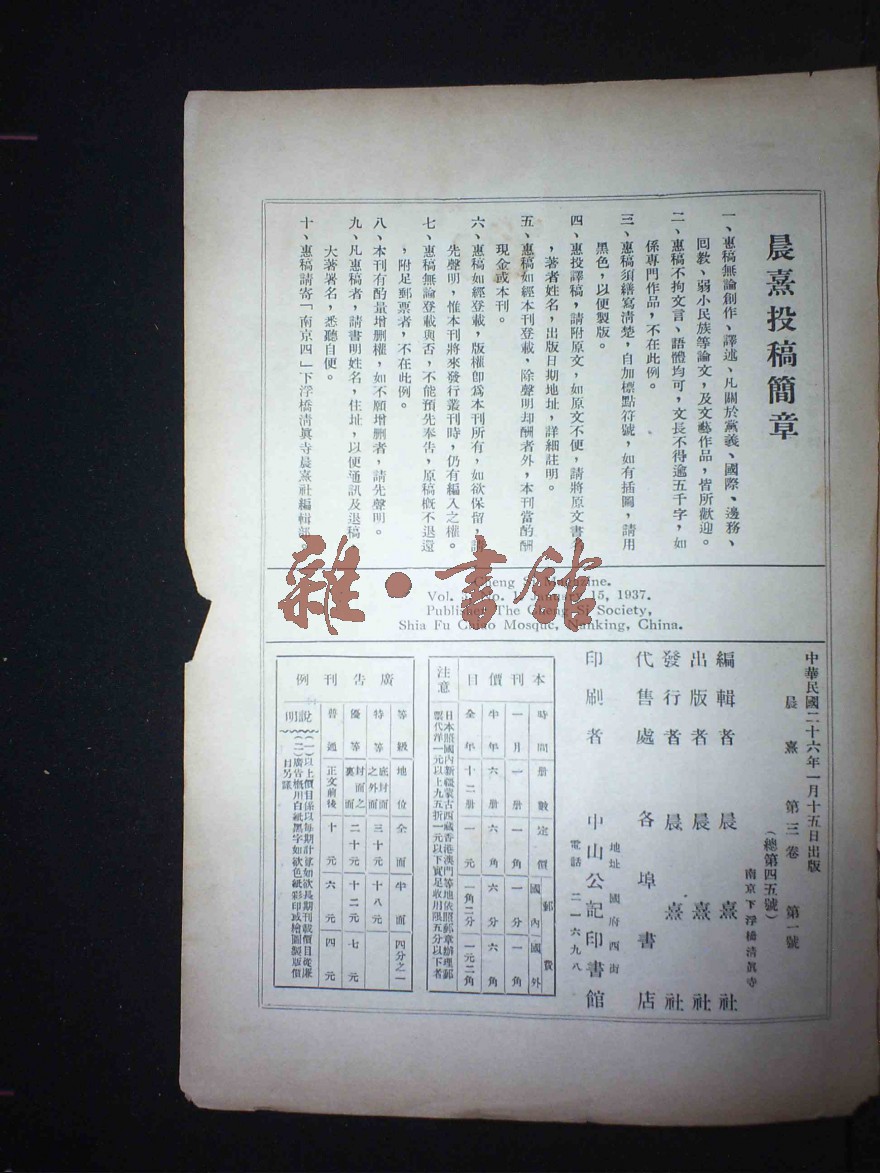 晨熹投稿簡章
一、惠稿無論創作、譯述、凡關於黨義、國際、邊務、
回教、弱小民族等論文，及文藝作品，皆所歡迎。
二、惠稿不拘文言、語體均可，文長不得逾五千字，如
係專門作品，不在此例。
三、惠稿須繕寫清楚，自加標點符號，如有插圖，請用
黑色，以便製版。
四、惠投譯稿，請附原文，如原文不便，請將原文書名
，著者姓名，出版日期地址，詳細註明。
五、惠稿如經本刊登載，除聲明却酬者外，本刊當酌酬
現金或本刊。
六、惠稿如經登載，版權卽爲本刊所有，如欲保留，請
先聲明，惟本刊將來發行叢刊時，仍有編入之權。
七、惠稿無論登載與否，不能預先奉告，原稿槪不退還
，附足郵票者，不在此例。
八、本刊有酌量增删權，如不願增删者，請先聲明。
九、凡惠稿者，請書明姓名，住址，以便通訊及退稿
大著署名，悉聽自便。
十、惠稿請寄「南京四」下浮橋淸眞寺晨熹社編輯部。
Cheng Si Magazine.
Vol. No. 1 January 15, 1937.
Published The Cheng Si Society,
Shia Fu Chiao Mosque, Nanking, China.
雜·書館
中華民國二十六年一月十五日出版
晨熹 第三卷 第一號
（總第四五號）
南京下浮橋淸眞寺
編輯者 晨熹社
出版者 晨熹社
發行者 晨熹社
代售處 各埠書店
地址 國府西街
印刷者 中山公記印書館
電話 二一六九八
本刊價目
時間 册數 定價 郵費 國內 國外
一月 一册 一角 一分 一角
半年 六册 六角 六分 六角
全年 十二册 一元 一角二分 一元二角
注意
日本照國內新疆蒙古西藏香港澳門等地依照郵章辦理郵
票代洋一元以上九五折一元以下實足收用限五分以下者
廣告刊例
等級 地位 全面 半面 四分之一
特等 底封面之外面 三十元 十八元
優等 封面之裏面 二十元 十二元 七元
普通 正文前後 十元 六元 四元
說明
（一）以上價目係以每期計算如欲長期刊載價目從廉
（二）廣告概用白紙黑字如欲色紙彩印或繪圖製版價
目另議